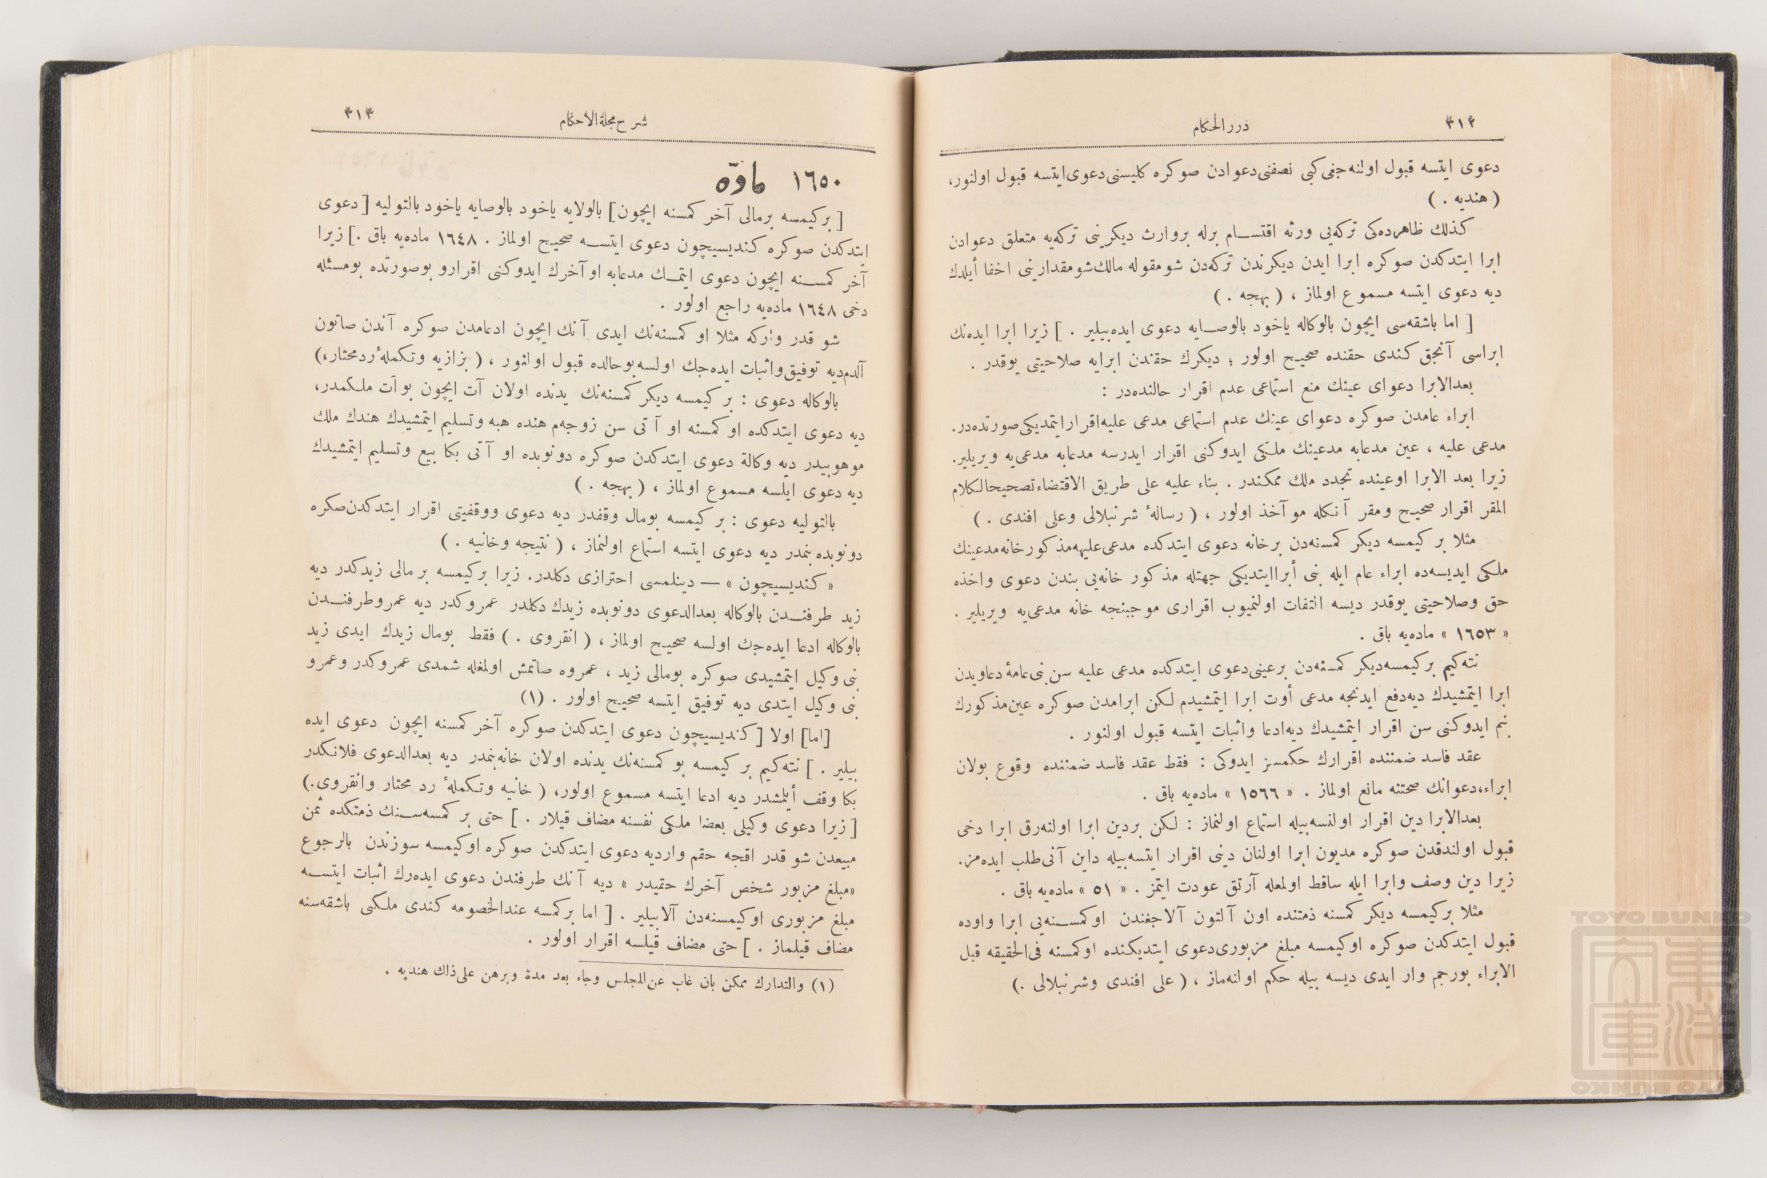 ٣١٢
دررالحكام
دعوى ايتسه قبول اولنه‌جغى كبى نصفنى دعوادن صوكره كليسنى دعوى ايتسه قبول اولنور،
( هنديه . )
كذلك ظاهرده‌كى تركه‌يى ورثه اقتســام برله بروارث ديكرينى تركه‌يه متعلق دعوادن
ابرا ايتدكدن صوكره ابرا ايدن ديكرندن تركه‌دن شو مقوله مالك شو مقدارينى اخفا أيلدك
ديه دعوى ايتسه مسموع اولماز ، ( بهجه . )
[ اما باشقه‌سى ايچون بالوكاله ياخود بالوصــايه دعوى ايده‌بيلير . ] زيرا ابرا ايده‌نك
ابراسى آنجق كندى حقنده صحيح اولور ؛ ديكرك حقندن ابرايه صلاحيتى يوقدر .
بعدالابرا دعواى عينك منع استماعى عدم اقرار حالنده‌در :
ابراء عامدن صوكره دعواى عينك عدم استماعى مدعى عليه اقرار ايتمديكى صورتده‌در.
مدعى عليه ، عين مدعابه مدعينك ملكى ايدوكنى اقرار ايدرسه مدعابه مدعى‌يه ويريلير.
زيرا بعد الابرا اوعينده تجدد ملك ممكندر . بناء عليه على طريق الاقتضاء تصحيحا لكلام
المقر اقرار صحيح ومقر آنكله موآخذ اولور ، ( رسالهٔ شرنبلالى وعلى افندى . )
مثلا بر كيمسه ديكر كمسنه‌دن برخانه دعوى ايتدكده مدعى عليه مذكور خانه مدعينك
ملكى ايديسه‌ده ابراء عام ايله بنى أبرا ايتديكى جهتله مذكور خانه‌يى بندن دعوى واخذه
حق وصلاحيتى يوقدر ديسه التفات اولنميوب اقرارى موجبنجه خانه مدعى‌يه ويريلير .
« ١٦٥٣ » ماده‌يه باق .
نته‌كيم بر كيمسه ديكر كمسنه‌دن برعينى دعوى ايتدكده مدعى عليه سن بنى عامهٔ دعاويدن
ابرا ايتمشيدك ديه دفع ايدنجه مدعى أوت ابرا ايتمشيدم لكن ابرامدن صوكره عين مذكورك
بنم ايدوكنى سن اقرار ايتمشيدك ديه ادعا واثبات ايتسه قبول اولنور .
عقد فاسد ضمننده اقرارك حكمسز ايدوكى : فقط عقد فاسد ضمننده وقوع بولان
ابراء، دعوانك صحتنه مانع اولماز . « ١٥٦٦ » ماده‌يه باق .
بعدالابرا دين اقرار اولنسه بيله استماع اولنماز : لكن بردين ابرا اولنه‌رق ابرا دخى
قبول اولندقدن صوكره مديون ابرا اولنان دينى اقرار ايتسه بيله داين آنى طلب ايده‌مز.
زيرا دين وصف وابرا ايله ساقط اولمغله آرتق عودت ايتمز . « ٥١ » ماده‌يه باق .
مثلا بركيمسه ديكر كمسنه ذمتنده اون آلتون آلاجغندن اوكمســنه‌يى ابرا واوده
قبول ايتدكدن صوكره اوكيمسه مبلغ مزبورى دعوى ايتديكنده اوكمسنه فى‌الحقيقه قبل
الابراء بورجم وار ايدى ديسه بيله حكم اولنه‌ماز ، ( على افندى وشرنبلالى .)
شرح مجلة الاحكام
٣١٣
١٦٥٠ مادّه
[ بركيمسه برمالى آخر كمسنه ايچون] بالولايه ياخود بالوصايه ياخود بالتوليه [ دعوى
ايتدكدن صوكره كنديسيچون دعوى ايتســه صحيح اولماز . ١٦٤٨ ماده‌يه باق .] زيرا
آخر كمســنه ايچون دعوى ايتمــك مدعابه او آخرك ايدوكنى اقرارو بوصورتده بومسئله
دخى ١٦٤٨ ماده‌يه راجع اولور .
شو قدر واركه مثلا او كمسنه‌نك ايدى آنك ايچون ادعامدن صوكره آندن صاتون
آلدم ديه توفيق واثبات ايده‌جك اولسه بوحالده قبول اولنور ، ( بزازيه وتكملهٔ ردمحتار،)
بالوكاله دعوى : بر كيمسه ديكر كمسنه‌نك يدنده اولان آت ايچون بوآت ملكمدر،
ديه دعوى ايتدكده اوكمسنه او آتى سن زوجه‌م هنده هبه وتسليم ايتمشيدك هندك ملك
موهوبيدر ديه وكالة دعوى ايتدكدن صوكره دونوبده او آتى بكا بيع وتسليم ايتمشيدك
ديه دعوى ايلسه مسموع اولماز ، ( بهجه . )
بالتوليه دعوى : بر كيمسه بومال وقفدر ديه دعوى ووقفيتى اقرار ايتدكدن صكره
دونوبده بنمدر ديه دعوى ايتسه استماع اولنماز ، ( نتيجه وخانيه . )
« كنديسيچون » — دينلمسى احترازى دكلدر. زيرا بركيمسه بر مالى زيدكدر ديه
زيد طرفنــدن بالوكاله بعدالدعوى دونوبده زيدك دكلدر عمروكدر ديه عمرو طرفنــدن
بالوكاله ادعا ايده‌جك اولسه صحيح اولماز ، ( انقروى . ) فقط بومال زيدك ايدى زيد
بنى وكيل ايتمشيدى صوكره بومالى زيد ، عمروه صاتمش اولمغله شمدى عمروكدر وعمرو
بنى وكيل ايتدى ديه توفيق ايتسه صحيح اولور . (١)
[اما] اولا [ كنديسيچون دعوى ايتدكدن صوكره آخر كمسنه ايچون دعوى ايده
بيلير . ] نته‌كيم بر كيمسه بو كمسنه‌نك يدنده اولان خانه بنمدر ديه بعدالدعوى فلانكدر
بكا وقف أيلمشدر ديه ادعا ايتسه مسموع اولور، ( خانيه وتكملهٔ رد محتار وانقروى.)
[ زيرا دعوى وكيلى بعضا ملكى نفسنه مضاف قيلار . ] حتى بر كمسه‌ســنك ذمتكده ثمن
مبيعدن شو قدر اقچه حقم وارديه دعوى ايتدكدن صوكره اوكيمسه سوزندن بالرجوع
«مبلغ مزبور شخص آخرك حقيدر » ديه آنك طرفندن دعوى ايده‌رك اثبات ايتســه
مبلغ مزبورى اوكيمسنه‌دن آلابيلير . [ اما بركمسه عندالخصومه كندى ملكى باشقه‌سنه
مضاف قيلماز . ] حتى مضاف قيلسه اقرار اولور .
(١) والتدارك ممكن بان غاب عن المجلس وجاء بعد مدة وبرهن على ذلك هنديه .
TOYO BUNKO
東洋文庫
TOYO BUNKO